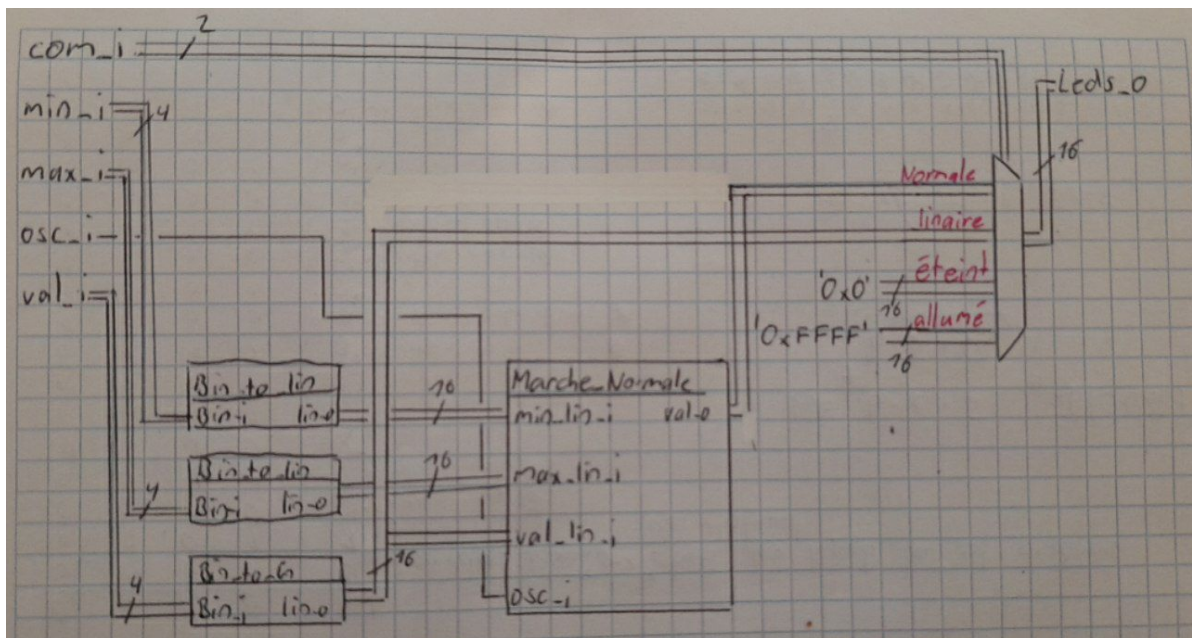 com_i 2
min_i 4
max_i
osc_i
val_i
Leds_o
16
Normale
linaire
'0x0' éteint
16
'0xFFFF' allumé
16
Bin_to_lin
Bin_i lin_o
16
Bin_to_lin
4 Bin_i lin_o
16
Bin_to_lin
4 Bin_i lin_o
16
Marche_Normale
min_lin_i val_o
max_lin_i
val_lin_i
osc_i